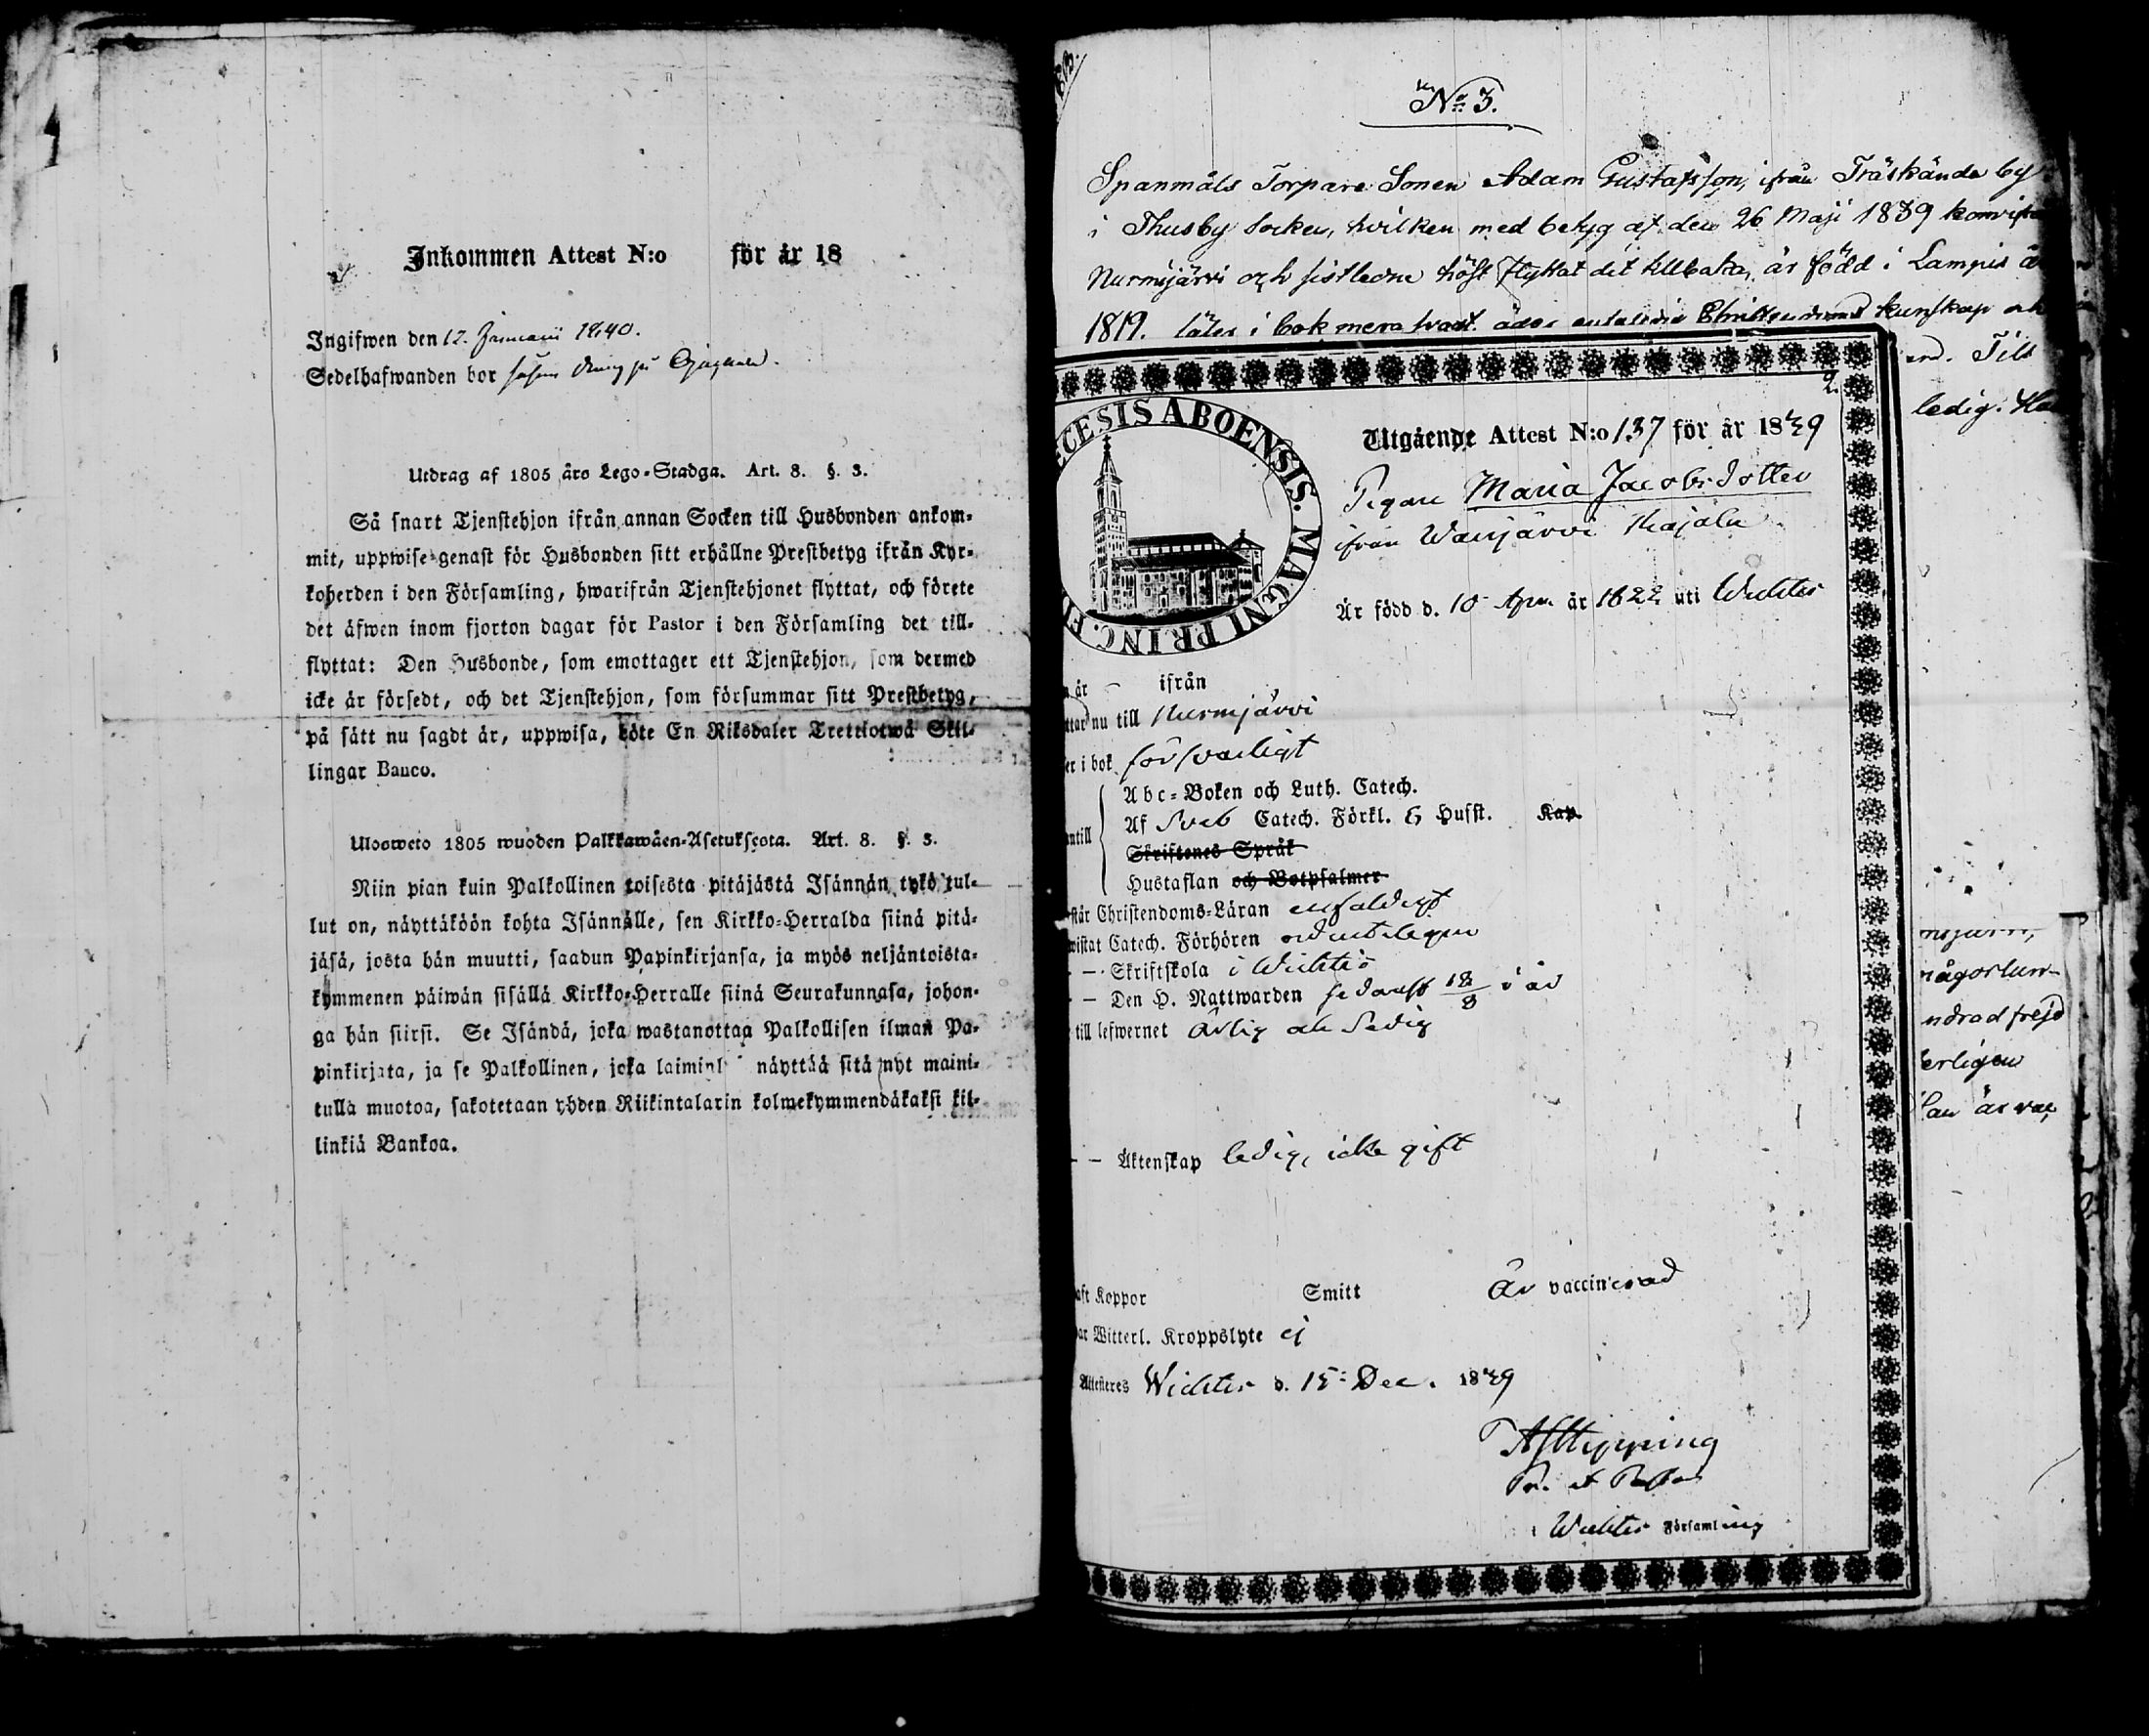 Inkommen Attest N:o för år 18
Ingifwen den 12. Januarii 1840.
Sedelhafwanden bor såsom dräng på
Utdrag af 1805 års Lego-Stadga. Art. 8. §. 3.
Så snart Tjenstehjon ifrån annan Socken till Husbonden ankom-
mit, uppwise genast för Husbonden sitt erhållne Prestbetyg ifrån Kyr-
koherden i den Församling, hwarifrån Tjenstehjonet flyttat, och förete
det äfwen inom fjorton dagar för Pastor i den Församling det till-
flyttat: Den Husbonde, som emottager ett Tjenstehjon, som dermed
icke är försedt, och det Tjenstehjon, som försummar sitt Prestbetyg,
på sätt nu sagdt är, uppwisa, böte En Riksdaler Trettiotwå Skil-
lingar Banco.
Ulosweto 1805 wuoden Palkkawäen-Asetuksesta. Art. 8. §. 3.
Niin pian kuin Palkollinen toisesta pitäjästä Isännän tykö tul-
lut on, näyttäköön kohta Isännälle, sen Kirkko-Herralda siinä pitä-
jäsä, josta hän muutti, saadun Papinkirjansa, ja myös neljäntoista-
kymmenen päiwän sisällä Kirkko-Herralle siinä Seurakunnasa, johon-
ga hän siirsi. Se Isändä, joka wastanottaa Palkollisen ilman Pa-
pinkirjata, ja se Palkollinen, joka laiminl näyttää sitä nyt maini-
tulla muotoa, sakotetaan yhden Riikintalarin kolmekymmendäkaksi kil-
linkiä Bankoa.
No 3.
Spanmåls Torpare Sonen Adam Gustafsson, ifrån Träskända by
i Thusby socken, hvilken med betyg af den 26 Maji 1839 kom
Nurmijärvi och sistledne höst flyttat dit tillbaka, är född i Lampis å
1819. läser i bok mera kunskap och
Till
ledig.
2.
ECESIS ABOENSIS. MAGNI PRINC. F
Utgående Attest N:o 137 för år 1839
Pigan Maria Jacobsdotter
ifrån Wanjärvi Majala
Är född d. 10 Apr. år 1822 uti Wichtis
år ifrån
ttar nu till Nurmjärvi
er i bok försvarligt
Abc-Boken och Luth. Catech.
Af Sveb Catech. Förkl. 6 Hufst. Kap.
antill
Skriftenes Språk
Hustaflan och Botpsalmer
står Christendoms-Läran enfaldigt
wistat Catech. Förhören ordenteligen
- - Skriftskola i Wichtis
- - Den H. Nattwarden sednast 18/8 i år
till lefwernet ärlig och sedig
- - Äktenskap ledig, icke gift
aft Koppor Smitt Är vaccinerad
ar Witterl. Kroppslyte ej
Attesteres Wichtis d. 15 Dec. 1839
Pr. et Pastor
i Wichtis Församling
någorlun-
ndrad frejd
erligen